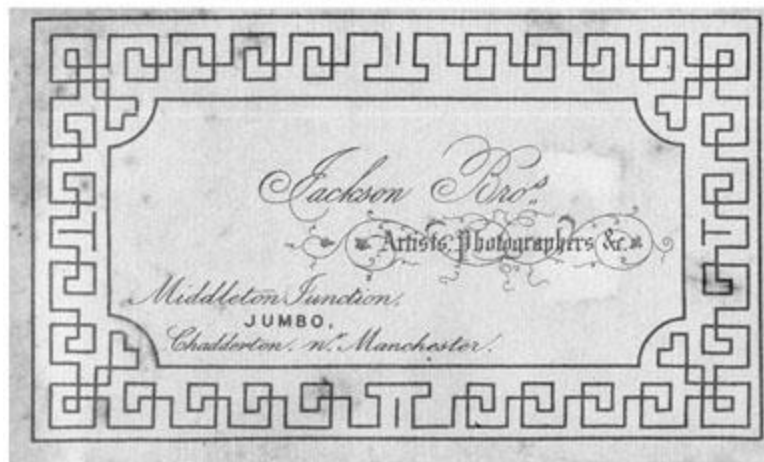 Jackson Bros.
Artists, Photographers &c.
Middleton Junction,
JUMBO,
Chadderton. nr. Manchester.